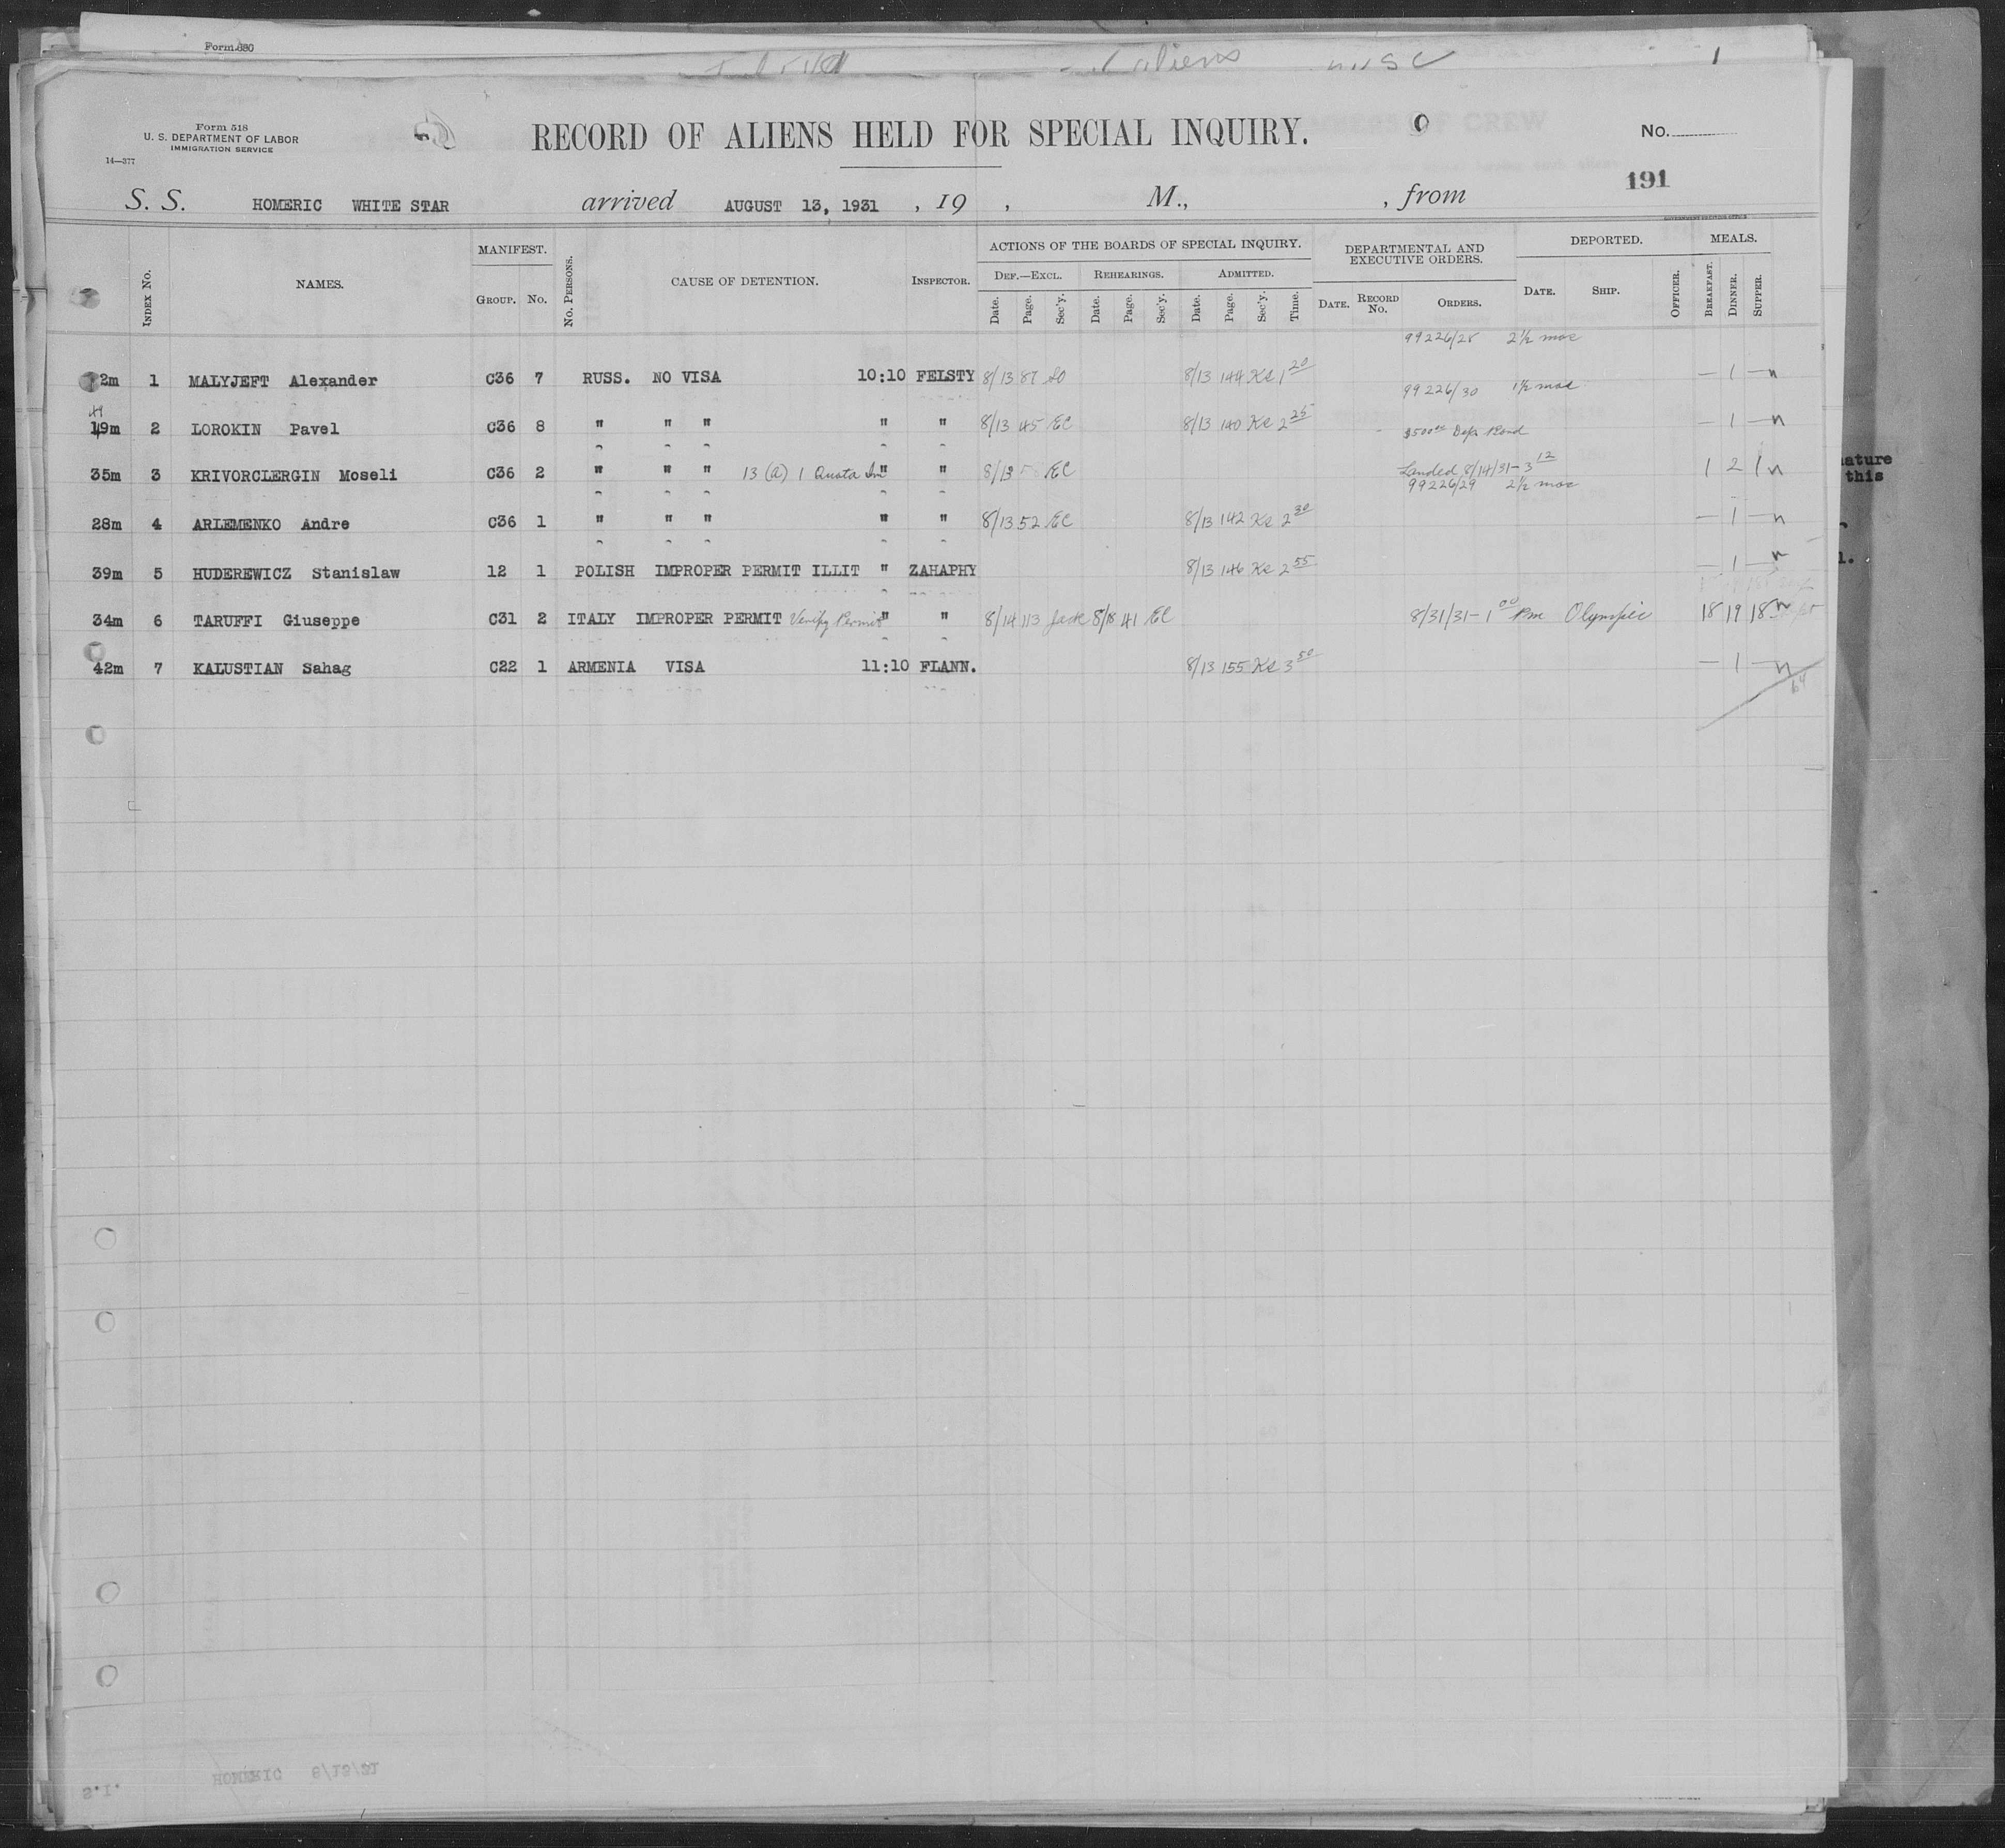 Form 680
aliens
1
Form 518
U. S. DEPARTMENT OF LABOR
IMMIGRATION SERVICE
14—377
RECORD OF ALIENS HELD FOR SPECIAL INQUIRY.
No.
191
S. S. HOMERIC WHITE STAR arrived AUGUST 13, 1931 , 19 , M., , from
INDEX NO. NAMES. MANIFEST. GROUP. NO. NO. PERSONS. CAUSE OF DETENTION. INSPECTOR. ACTIONS OF THE BOARDS OF SPECIAL INQUIRY. DEF.—EXCL. REHEARINGS. ADMITTED. DEPARTMENTAL AND EXECUTIVE ORDERS. DEPORTED. MEALS.
Date. Page. Sec'y. Date. Page. Sec'y. Date. Page. Sec'y. Time. DATE. RECORD No. ORDERS. DATE. SHIP. OFFICER. BREAKFAST. DINNER. SUPPER.
99226/28 2½ mos
2m 1 MALYJEFT Alexander C36 7 RUSS. NO VISA 10:10 FELSTY 8/13 87 8/13 144 Ke 1 20 — 1 — n
99226/30 1½ mos
19m 2 LOROKIN Pavel C36 8 " " " " " 8/13 45 EC 8/13 140 Ke 2 25 — 1 — n
$500 Dep Bond
35m 3 KRIVORCLERGIN Moseli C36 2 " " " 13 (a) 1 Quota Im " " 8/13 EC Landed 8/14/31 - 3 12 1 2 1 n
99226/29 2½ mos
28m 4 ARLEMENKO Andre C36 1 " " " " " 8/13 52 EC 8/13 142 Ke 2 30 — 1 — n
39m 5 HUDEREWICZ Stanislaw 12 1 POLISH IMPROPER PERMIT ILLIT " ZAHAPHY 8/13 146 Ke 2 55 — 1 — n
34m 6 TARUFFI Giuseppe C31 2 ITALY IMPROPER PERMIT Verify Permit " " 8/14 113 Jack 8/18 41 EC 8/31/31 - 1 00 Pm Olympic 18 19 18 n
42m 7 KALUSTIAN Sahag C22 1 ARMENIA VISA 11:10 FLANN. 8/13 155 Ke 3 50 — 1 — n
64
nature
this
HOMERIC 8/13/31
S.I.